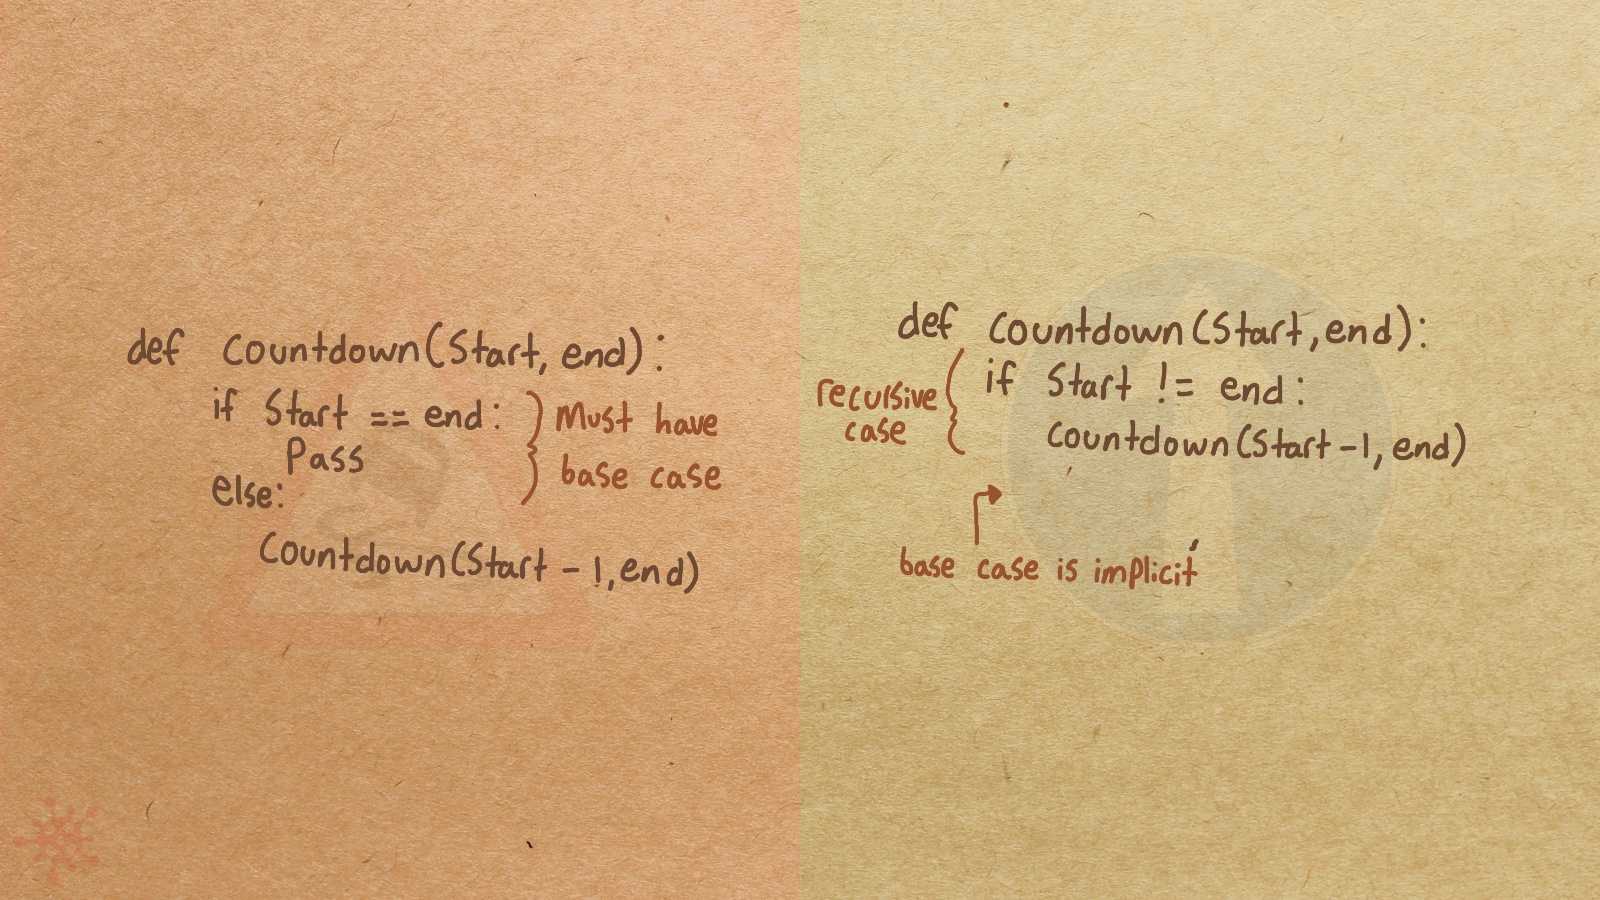 def countdown(start, end):
if start == end:
pass
else:
countdown(start - 1, end)
must have
base case
def countdown(start, end):
if start != end:
countdown(start - 1, end)
recursive
case
base case is implicit